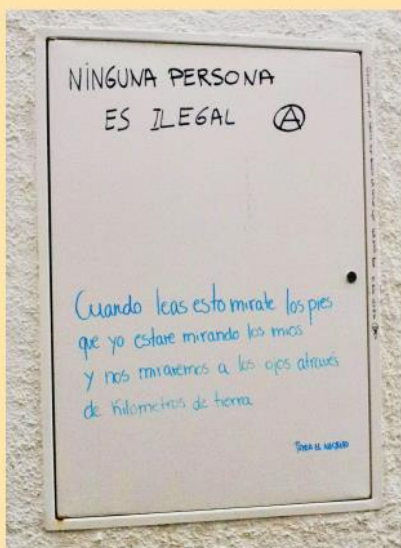 NINGUNA PERSONA
ES ILEGAL Ⓐ
Cuando leas esto mirate los pies
que yo estare mirando los mios
y nos miraremos a los ojos através
de Kilometros de tierra